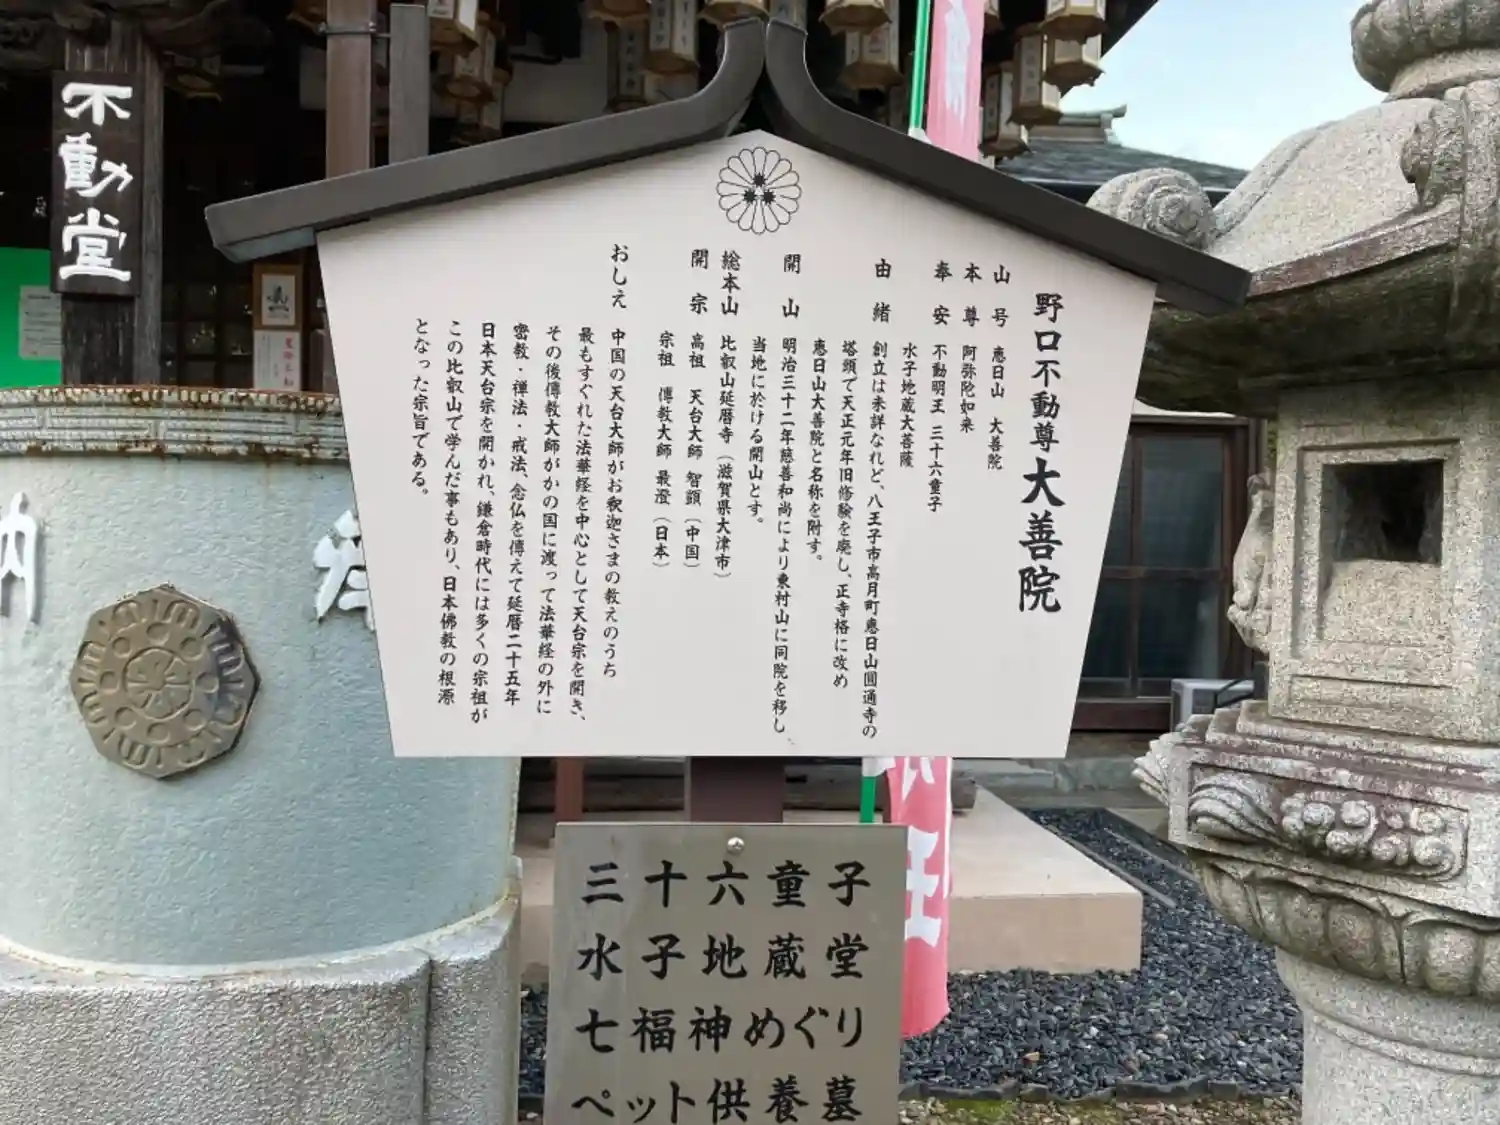 不動堂
野口不動尊大善院
山号 恵日山 大善院
本尊 阿弥陀如来
奉安 不動明王 三十六童子
水子地蔵大菩薩
由緒 創立は未詳なれど、八王子市高月町恵日山圓通寺の
塔頭で天正元年旧修験を廃し、正寺格に改め
恵日山大善院と名称を附す。
開山 明治三十二年慈善和尚により東村山に同院を移し
当地に於ける開山とす。
総本山 比叡山延暦寺（滋賀県大津市）
開宗 高祖 天台大師 智顗（中国）
宗祖 傳教大師 最澄（日本）
おしえ 中国の天台大師がお釈迦さまの教えのうち
最もすぐれた法華経を中心として天台宗を開き、
その後傳教大師がかの国に渡って法華経の外に
密教・禅法・戒法、念仏を傳えて延暦二十五年
日本天台宗を開かれ、鎌倉時代には多くの宗祖が
この比叡山で学んだ事もあり、日本佛教の根源
となった宗旨である。
三十六童子
水子地蔵堂
七福神めぐり
ペット供養墓